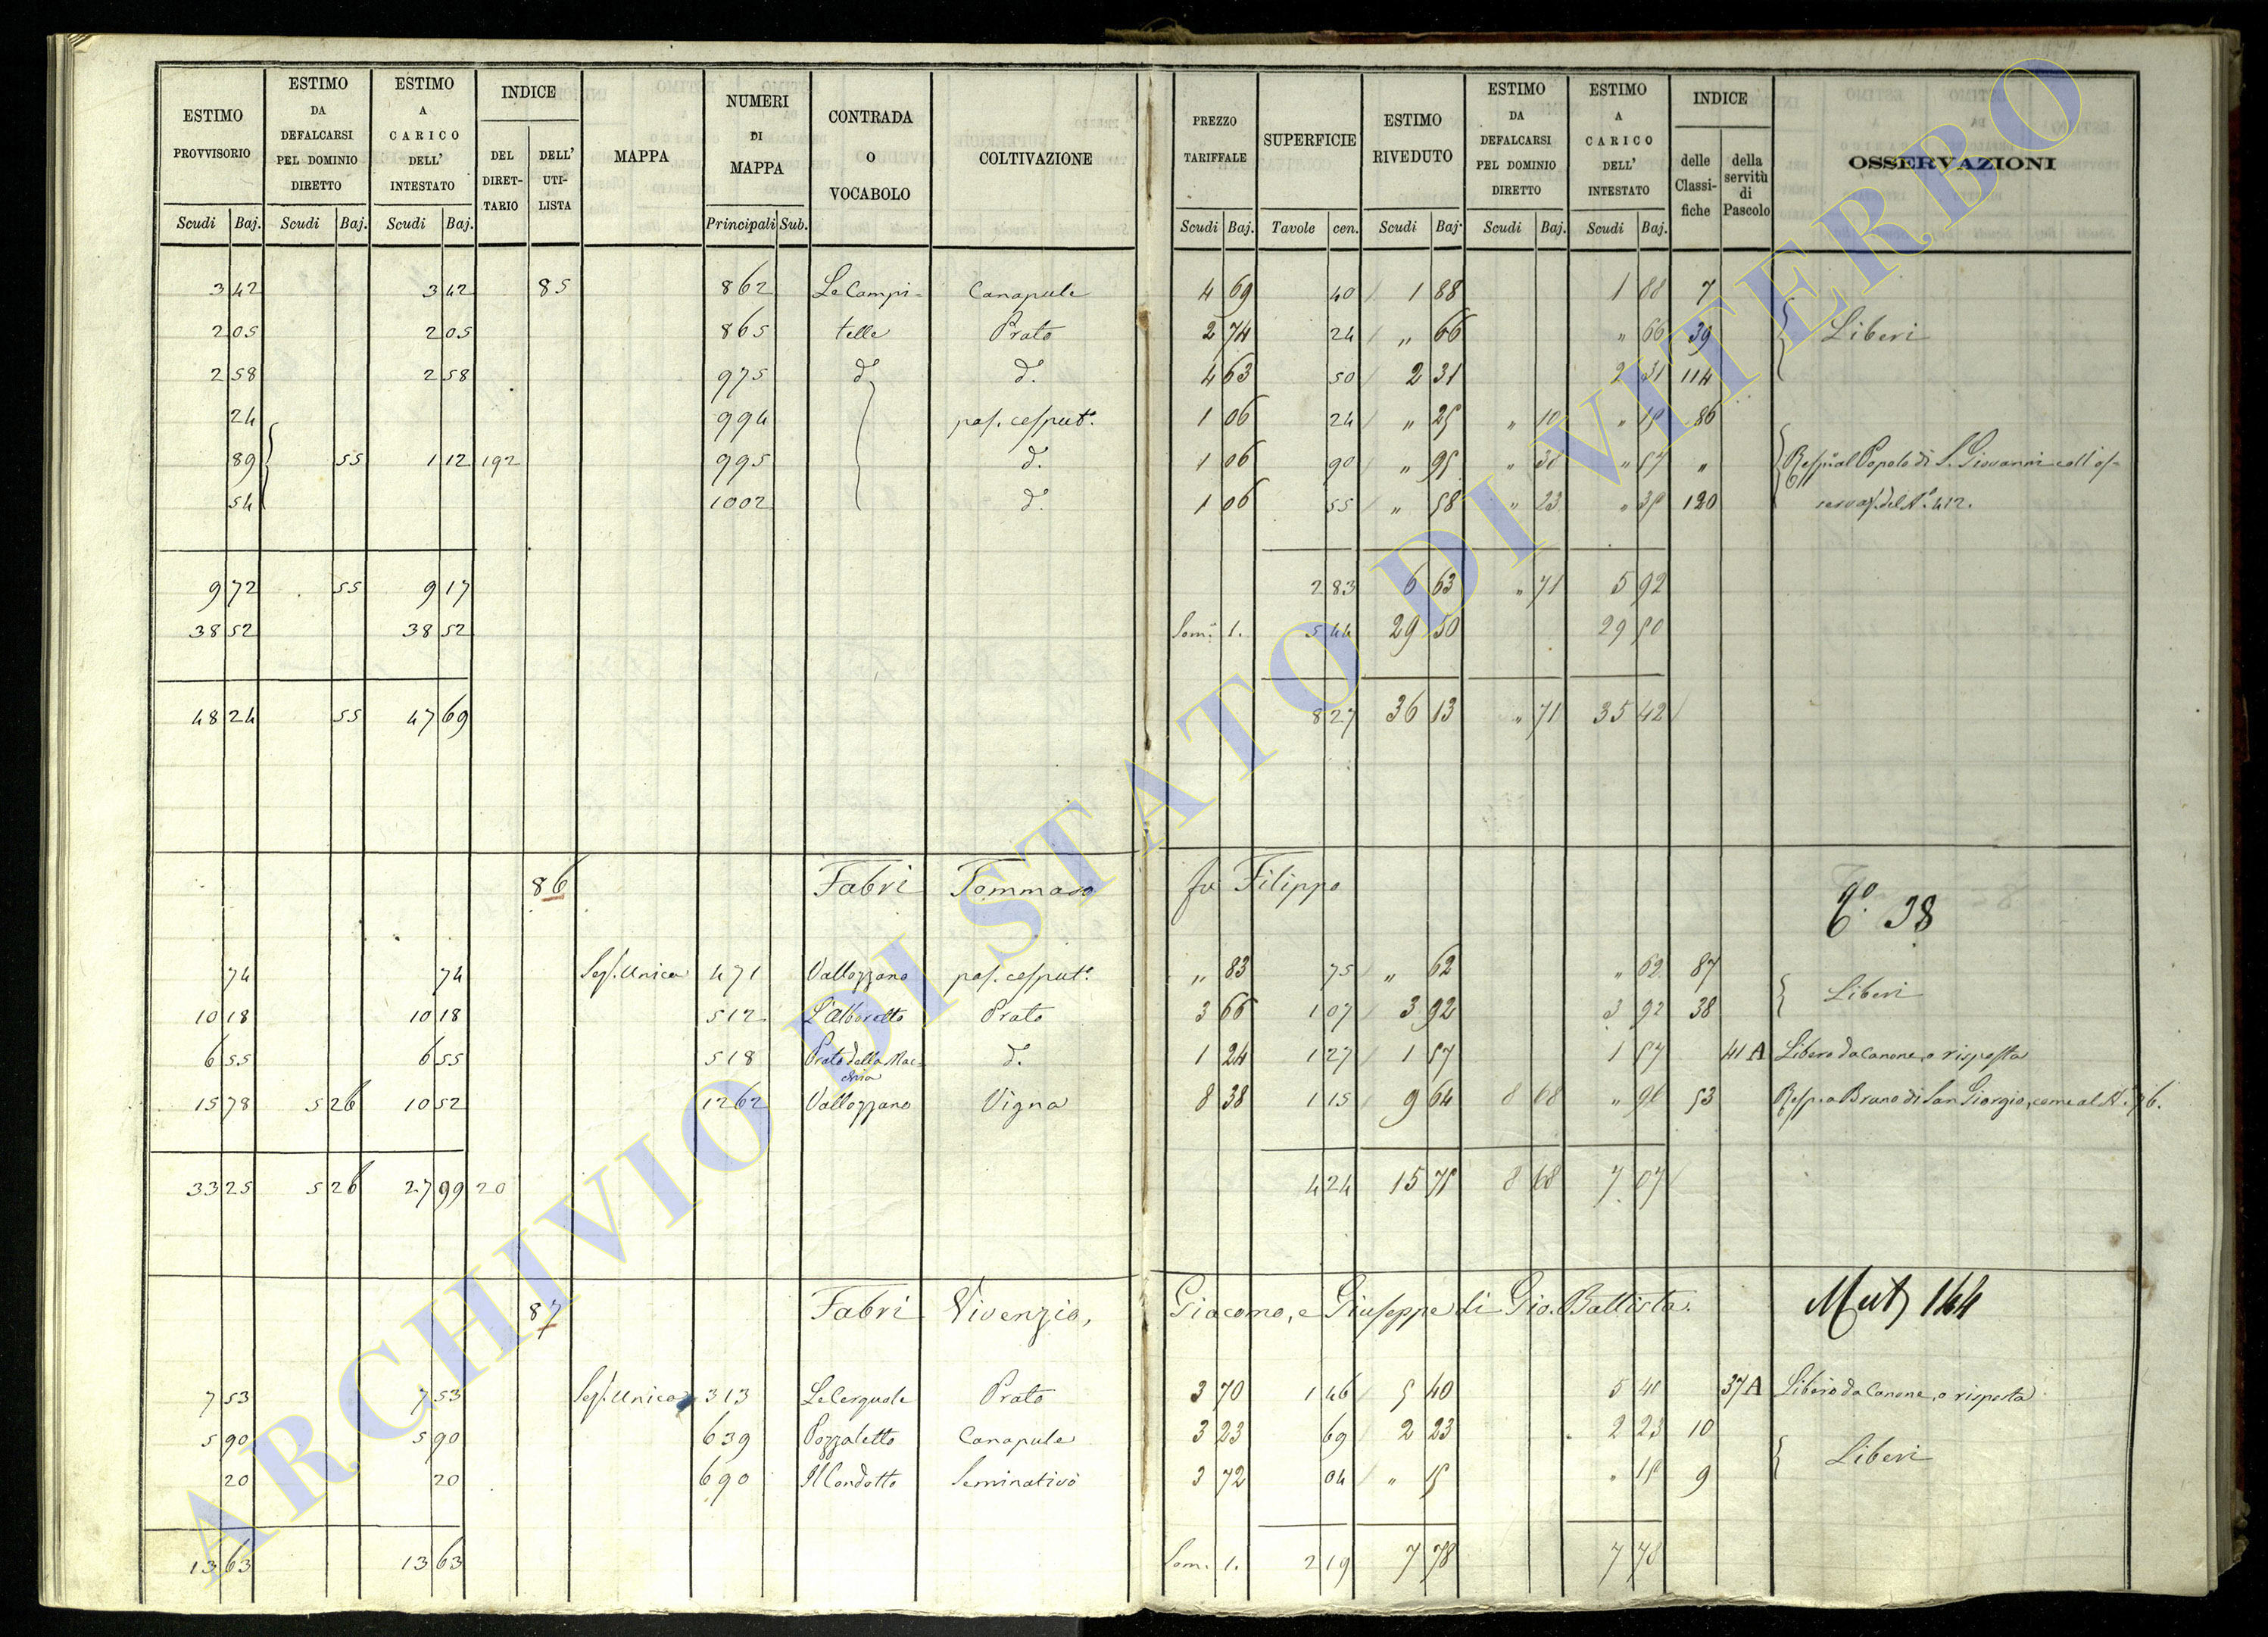 ESTIMO PROVVISORIO | ESTIMO DA DEFALCARSI PEL DOMINIO DIRETTO | ESTIMO A CARICO DELL' INTESTATO | INDICE DEL DIRET-TARIO | DELL' UTI-LISTA | MAPPA | NUMERI DI MAPPA | CONTRADA O VOCABOLO | COLTIVAZIONE | PREZZO TARIFFALE | SUPERFICIE | ESTIMO RIVEDUTO | ESTIMO DA DEFALCARSI PEL DOMINIO DIRETTO | ESTIMO A CARICO DELL' INTESTATO | INDICE delle Classi-fiche | della servitù di Pascolo | OSSERVAZIONI
Scudi Baj. Scudi Baj. Scudi Baj. Principali Sub. Scudi Baj. Tavole cen. Scudi Baj. Scudi Baj. Scudi Baj.
3 42 3 42 85 862 Le Campi- Canapule 4 69 40 1 88 1 88 7
2 05 2 05 865 telle Prato 2 74 24 " 66 " 66 39 Liberi
2 58 2 58 975 d.° d.° 4 63 50 2 31 2 31 114
24 994 pas. cesput.° 1 06 24 " 25 " 10 " 15 86
89 55 1 12 192 995 d.° 1 06 90 " 95 " 38 " 57 " Resp. al Popolo di S. Giovanni coll'os-
54 1002 d.° 1 06 55 " 58 " 23 " 35 120 servaz. del N.° 412.
9 72 55 9 17 2 83 6 63 " 71 5 92
38 52 38 52 Som.ª 1. 5 44 29 50 29 50
48 24 55 47 69 8 27 36 13 " 71 35 42
86 Fabri Tommaso fu Filippo
38
74 74 Sez. Unica 471 Vallozzano pas. cesput.° " 83 75 " 62 " 62 87
10 18 10 18 512 L'Alboretto Prato 3 66 1 07 3 92 3 92 38 Liberi
6 55 6 55 518 Prato della Mac-chia d.° 1 24 1 27 1 57 1 57 41 A Libero da Canone, o risposta
15 78 5 26 10 52 1262 Vallozzano Vigna 8 38 1 15 9 64 8 68 " 96 53 Resp. a Bruno di San Giorgio, come al N.°
33 25 5 26 27 99 20 4 24 15 75 8 68 7 07
87 Fabri Vivenzio, Giacomo, e Giuseppe di Gio. Battista. Mut 144
7 53 7 53 Sez. Unica 313 Le Cerquole Prato 3 70 1 46 5 40 5 40 37 A Libero da Canone, o risposta
5 90 5 90 639 Pozzaletto Canapule 3 23 69 2 23 2 23 10
20 20 690 Il Condotto Seminativo 3 72 04 " 15 " 15 9 Liberi
13 63 13 63 Som. 1. 2 19 7 78 7 78
ARCHIVIO DI STATO DI VITERBO